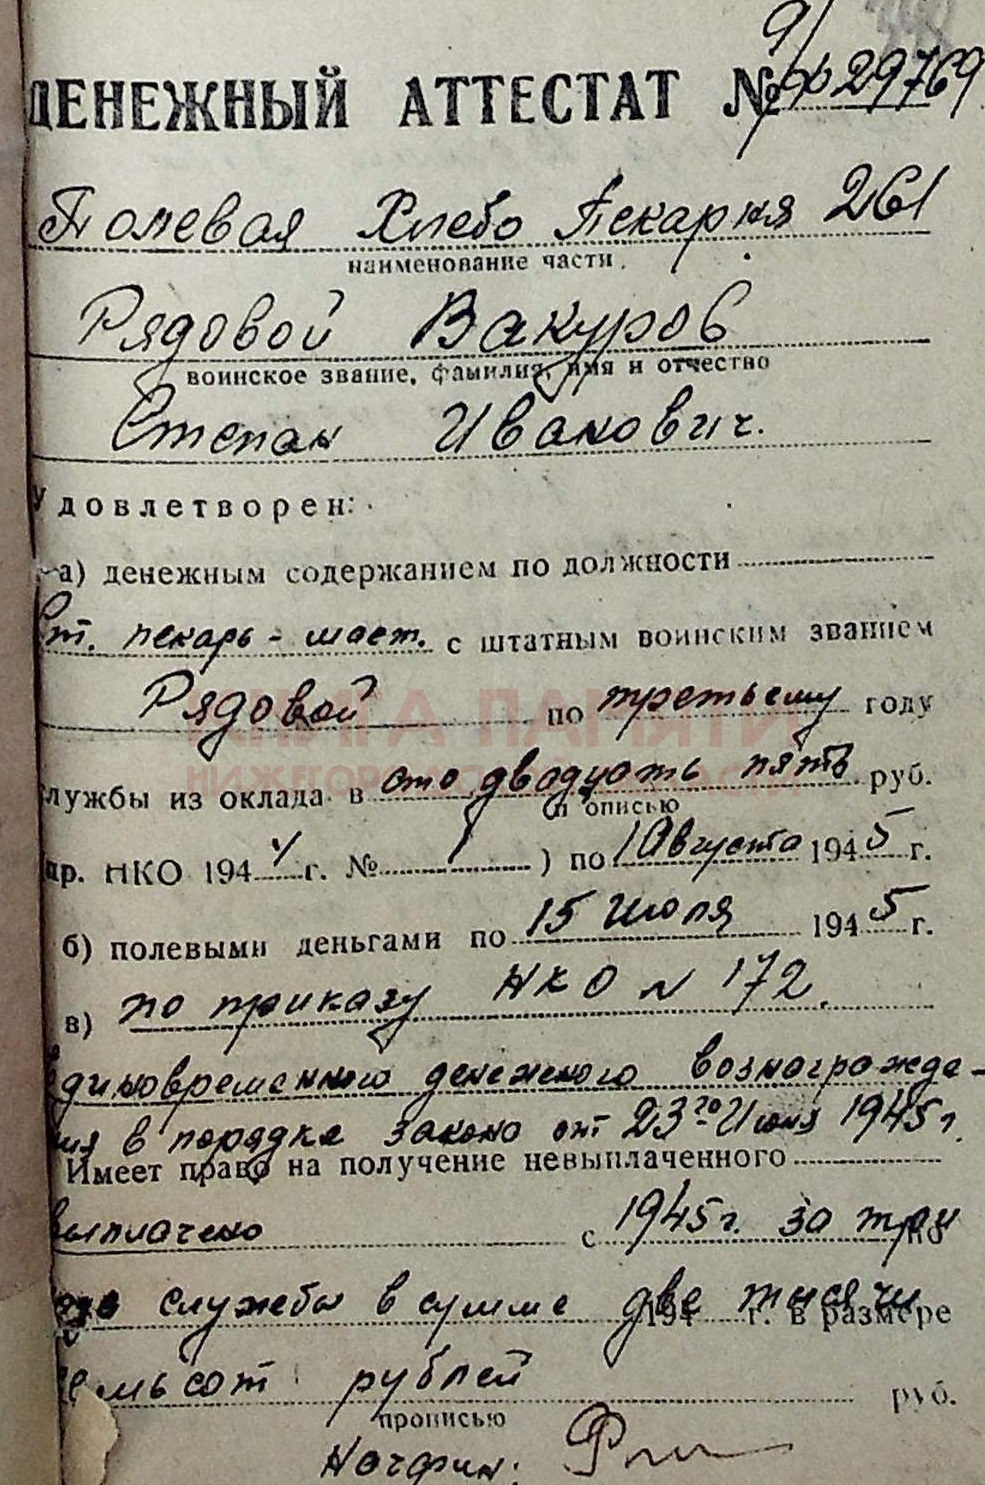 ДЕНЕЖНЫЙ АТТЕСТАТ № 29769
Полевая Хлебо Пекарня 261
наименование части
Рядовой Вакуров
воинское звание, фамилия, имя и отчество
Степан Иванович.
Удовлетворен:
а) денежным содержанием по должности
Ст. пекарь - маст. с штатным воинским званием
Рядовой по третьему году
КНИГА ПАМЯТИ
службы из оклада в сто двадцать пять руб.
прописью
пр. НКО 194 г. № ) по 1 Августа 1945 г.
б) полевыми деньгами по 15 Июля 1945 г.
в) по приказу НКО N 172.
Единовременного денежного вознагражде-
ния в порядке закона от 23го Июня 1945 г.
Имеет право на получение невыплаченного
выплачено с 1945 г. за три по
службы в сумме две тысячи 194 г. в размере
семьсот рублей руб.
прописью
Начфин: